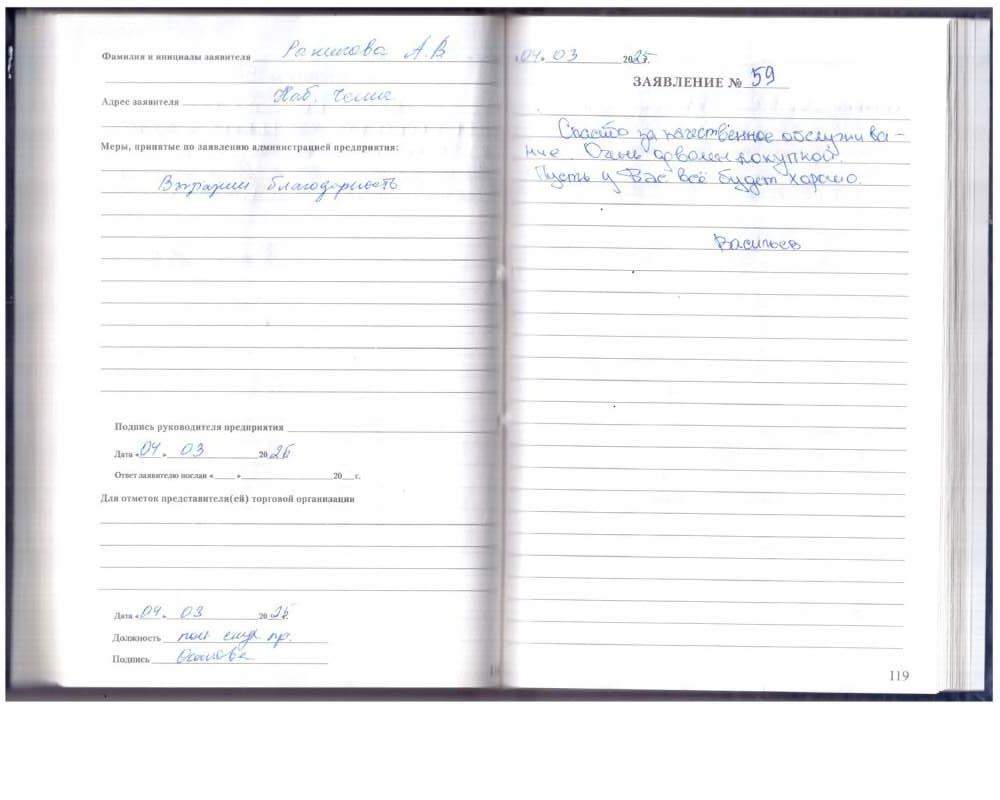 Фамилия и инициалы заявителя А.В
Адрес заявителя Наб. Челны
Меры, принятые по заявлению администрацией предприятия:
благодарность
Подпись руководителя предприятия
Дата «04» 03 2025
Ответ заявителю послан « » 20 г.
Для отметок представителя(ей) торговой организации
Дата «04» 03 2025г.
Должность пр.
Подпись
«04» 03 2025г.
ЗАЯВЛЕНИЕ № 59
Спасибо за качественное обслужива-
ние. Очень доволен покупкой.
Пусть у Вас всё будет хорошо.
Васильев
119